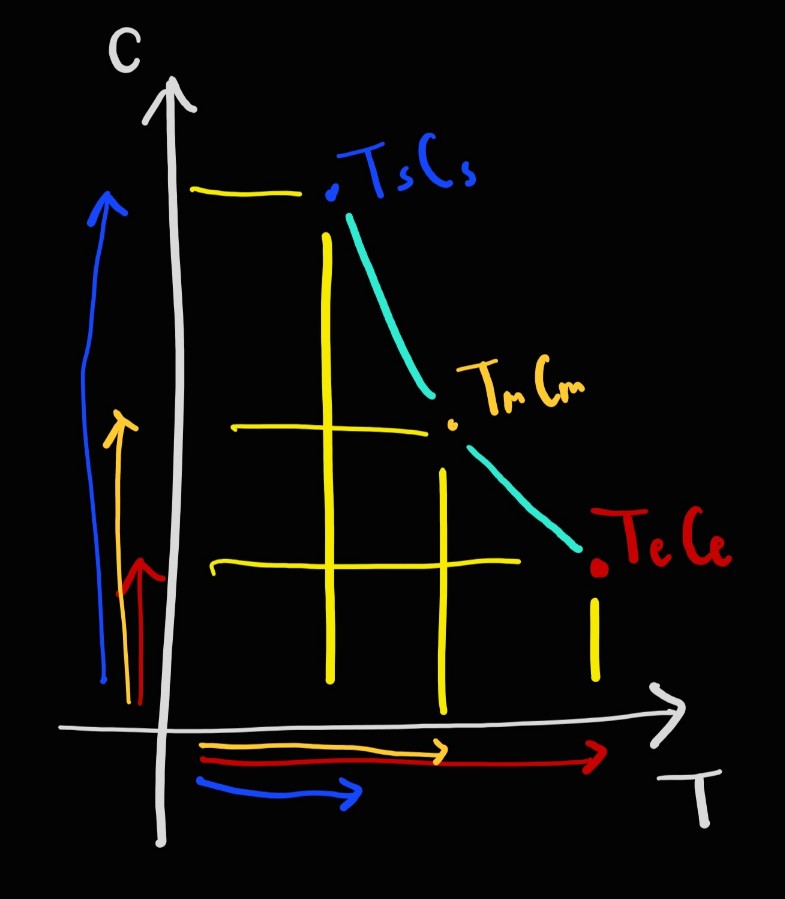 C
TsCs
TmCm
TeCe
T